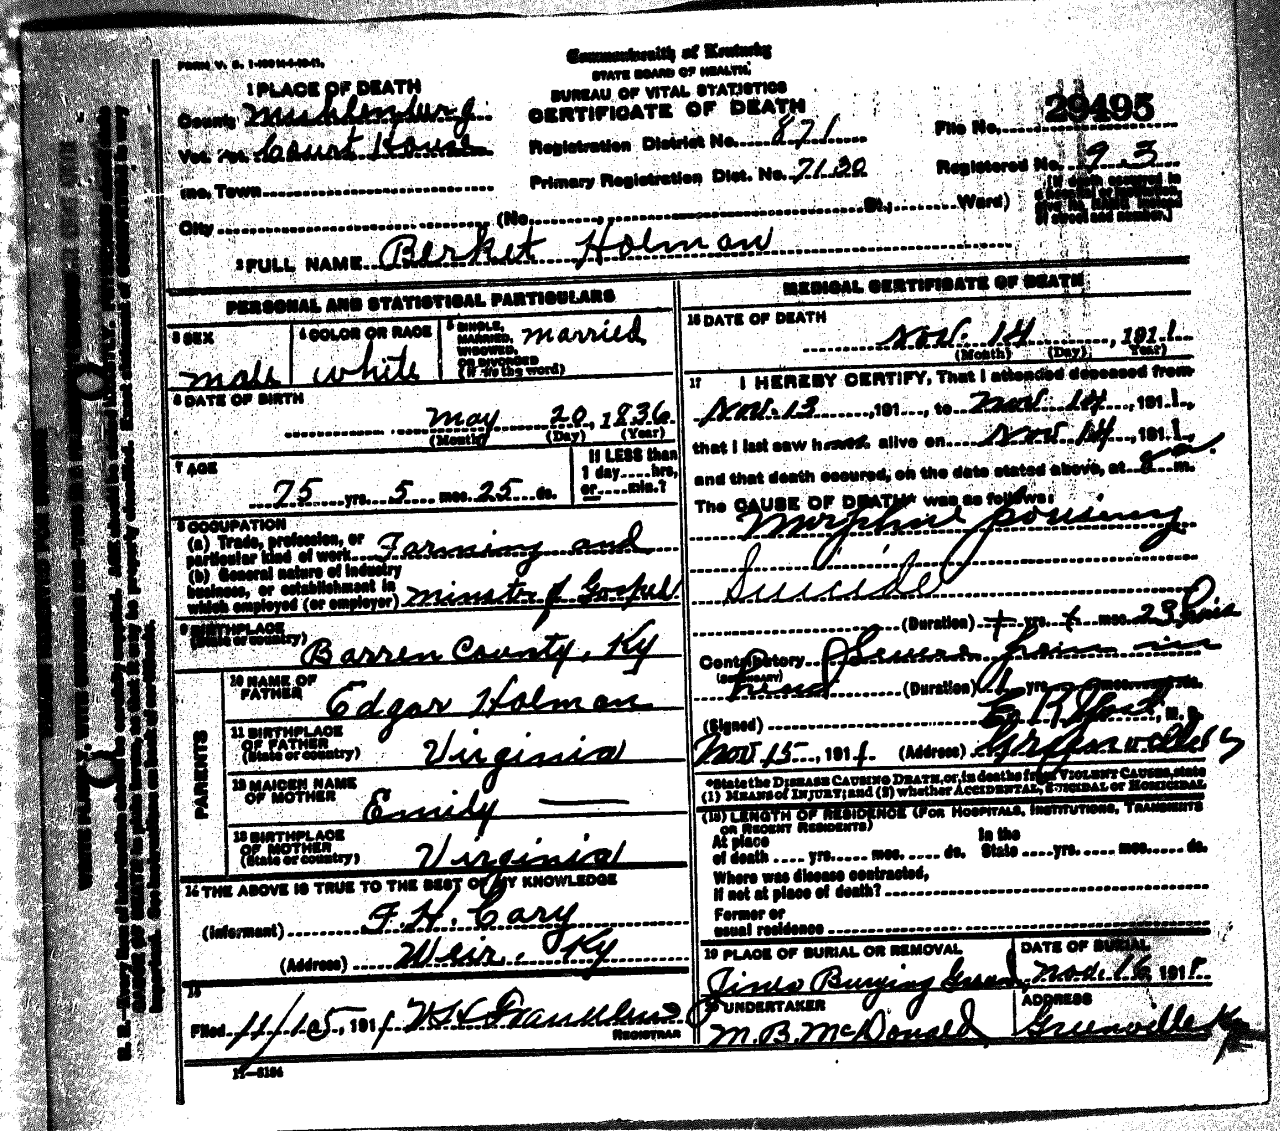 FORM V. S. 1-
Commonwealth of Kentucky
STATE BOARD OF HEALTH,
BUREAU OF VITAL STATISTICS
CERTIFICATE OF DEATH
1 PLACE OF DEATH
County Muhlenburg
Vot. Pct. Court House
Inc. Town
City (No. , St., Ward)
Registration District No. 871
Primary Registration Dist. No. 7130
File No. 29495
Registered No. 93
[If death occurred in a hospital or institution, give its NAME instead of street and number.]
2 FULL NAME Berket Holman
PERSONAL AND STATISTICAL PARTICULARS
3 SEX
male
4 COLOR OR RACE
white
5 SINGLE, MARRIED, WIDOWED, OR DIVORCED (Write the word)
married
6 DATE OF BIRTH
may 20, 1836
(Month) (Day) (Year)
7 AGE
75 yrs. 5 mos. 25 ds.
If LESS than 1 day....hrs, or.....min.?
8 OCCUPATION
(a) Trade, profession, or particular kind of work Farming and
(b) General nature of industry business, or establishment in which employed (or employer) minister of Gospel
9 BIRTHPLACE (State or country) Barren County, Ky
PARENTS
10 NAME OF FATHER Edgar Holman
11 BIRTHPLACE OF FATHER (State or country) Virginia
12 MAIDEN NAME OF MOTHER Emily —
13 BIRTHPLACE OF MOTHER (State or country) Virginia
14 THE ABOVE IS TRUE TO THE BEST OF MY KNOWLEDGE
(Informant) F. H. Cary
(Address) Weir, Ky
15
Filed 11/15, 1911
REGISTRAR
11-5184
MEDICAL CERTIFICATE OF DEATH
16 DATE OF DEATH
Nov. 14, 1911
(Month) (Day) Year)
17 I HEREBY CERTIFY, That I attended deceased from
Nov. 13, 191..., to Nov 14, 1911,
that I last saw h alive on Nov 14, 1911,
and that death occured, on the date stated above, at 8 a. m.
The CAUSE OF DEATH* was as follows:
Morphine
Suicide
(Duration) yrs. mos. 23
Contributory Severe pain in
(SECONDARY)
(Duration) yrs. mos. ds.
(Signed) , M. D.
Nov 15, 1911 (Address)
*State the DISEASE CAUSING DEATH, or, in deaths from VIOLENT CAUSES, state
(1) MEANS of INJURY; and (2) whether ACCIDENTAL, SUICIDAL or HOMICIDAL
(18) LENGTH OF RESIDENCE (FOR HOSPITALS, INSTITUTIONS, TRANSIENTS OR RECENT RESIDENTS)
At place of death .... yrs..... mos. .... ds.
In the State ....yrs. .... mos..... ds.
Where was disease contracted, if not at place of death?
Former or usual residence
19 PLACE OF BURIAL OR REMOVAL
Burying
DATE OF BURIAL
Nov. 16, 191
20 UNDERTAKER
M. B. McDonald
ADDRESS
Greenville Ky